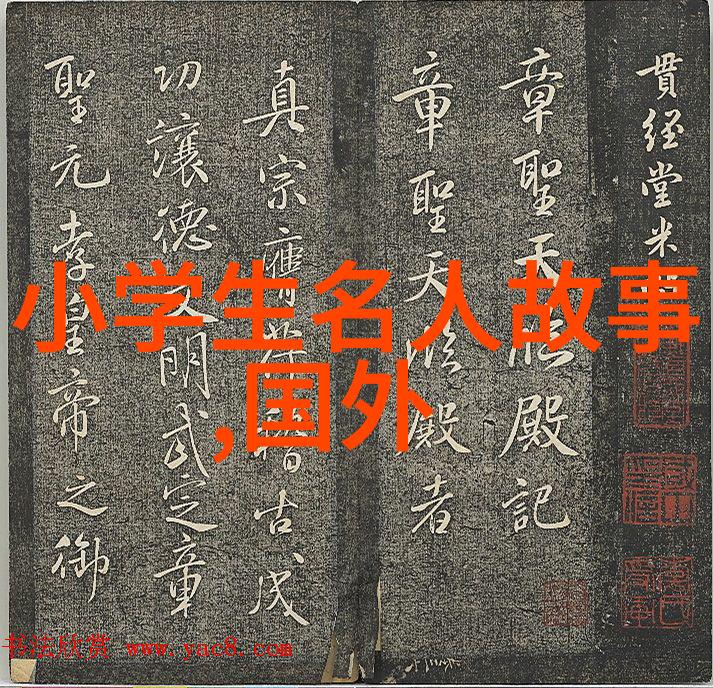 貫經堂米
章聖天臨殿記
章聖天臨殿者
真宗膺符稽古成
功讓德文明武定章
聖元孝皇帝之御
小学生名人故事
,国外
书法欣赏 www.yac8.com